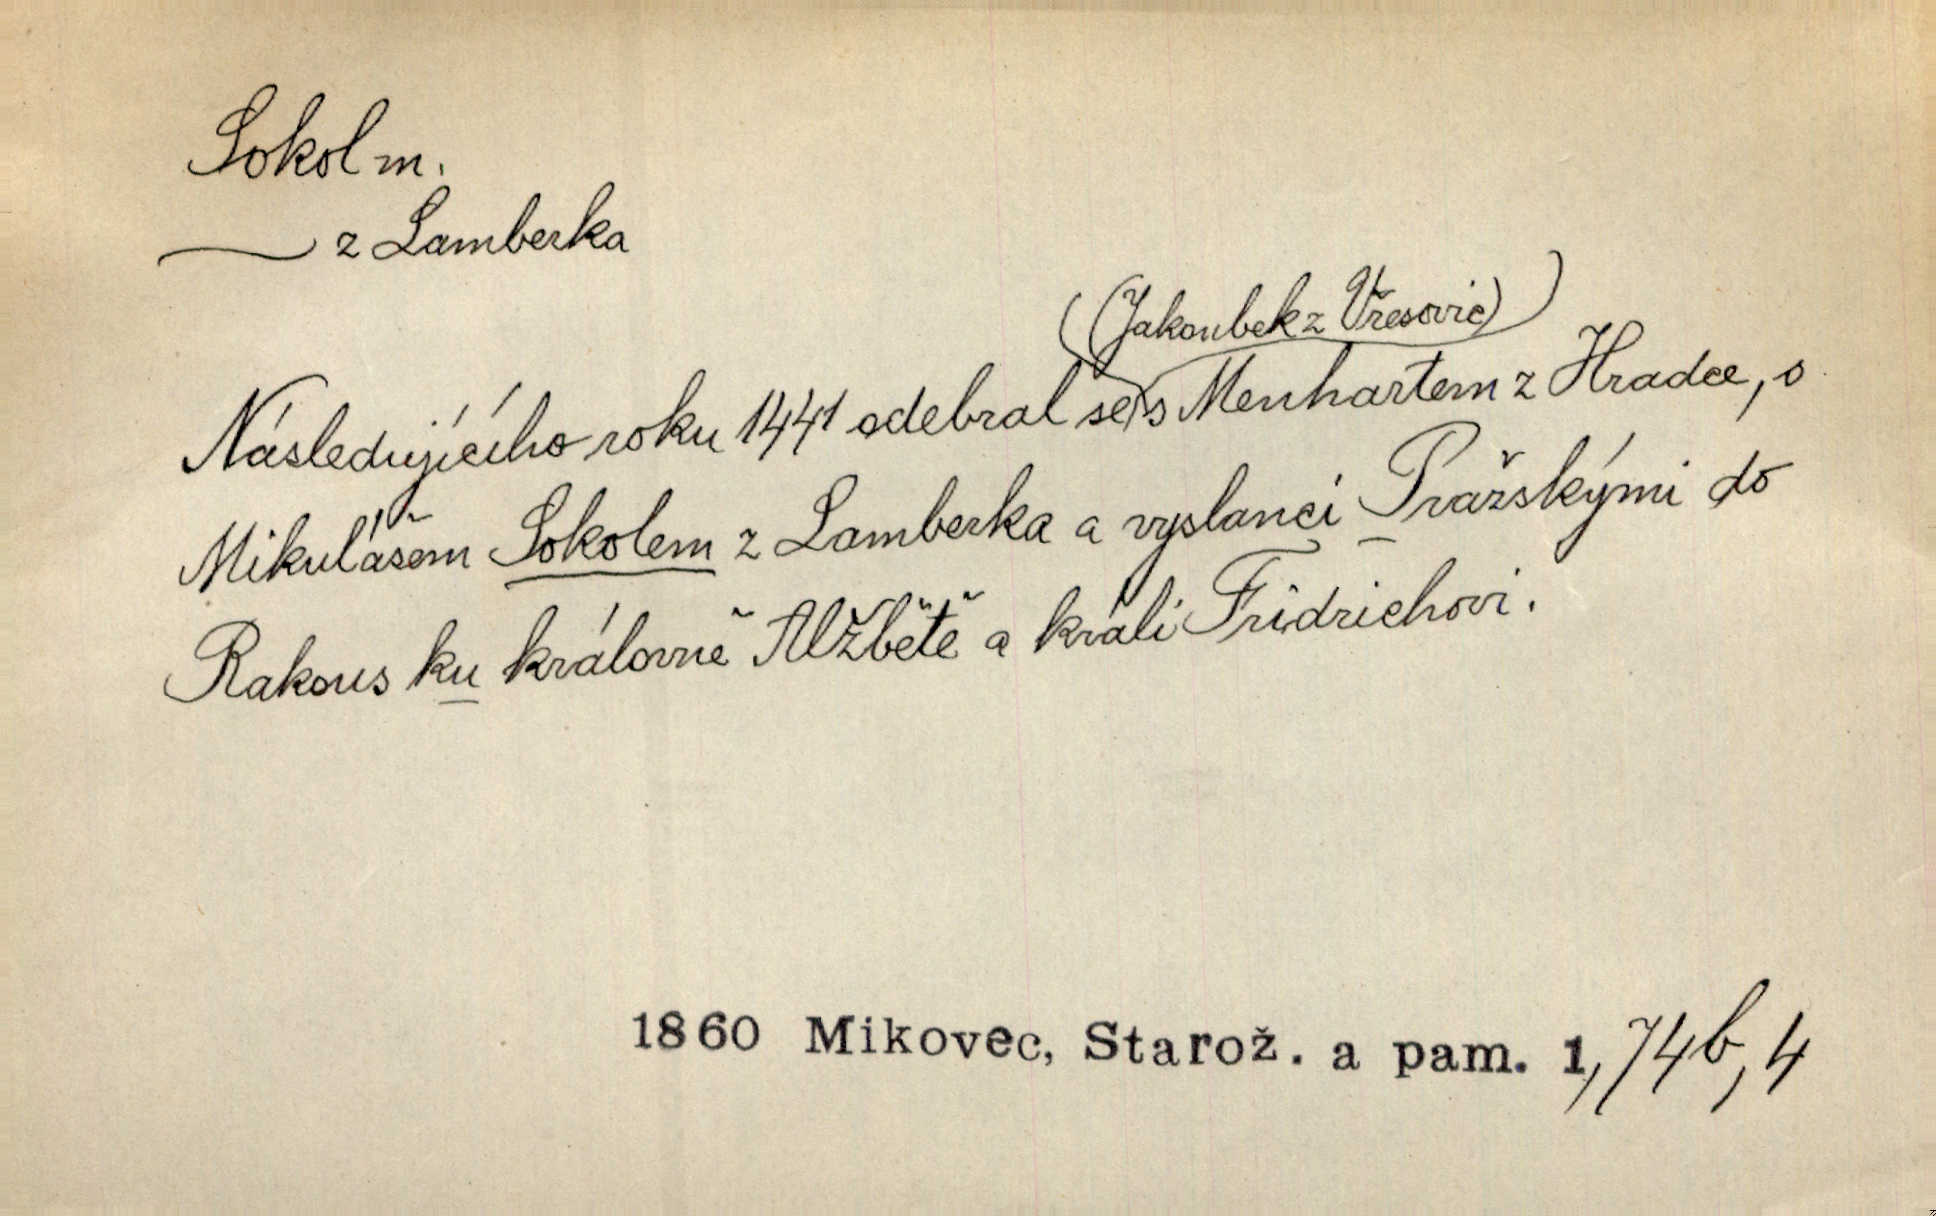 Sokol m.
z Lamberka
(Jakoubek z Vřesovic)
Následujícího roku 1441 odebral se s Menhartem z Hradce, s
Mikulášem Sokolem z Lamberka a vyslanci Pražskými do
Rakous ku královně Alžbětě a králi Fridrichovi.
1860 Mikovec, Starož. a pam. 1, 74b, 4